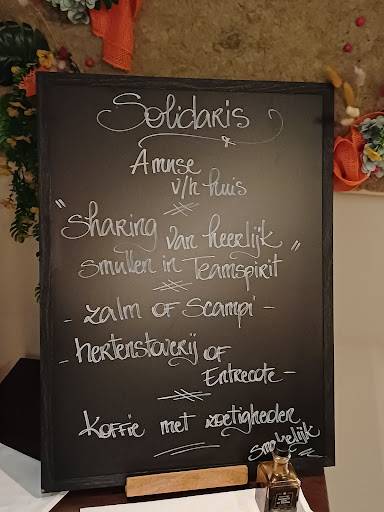 Solidaris
Amuse
v/h huis
"sharing van heerlijk
smullen in Teamspirit"
- zalm of scampi -
- hertenstoverij of
Entrecote -
koffie met zoetigheden
smakelijk